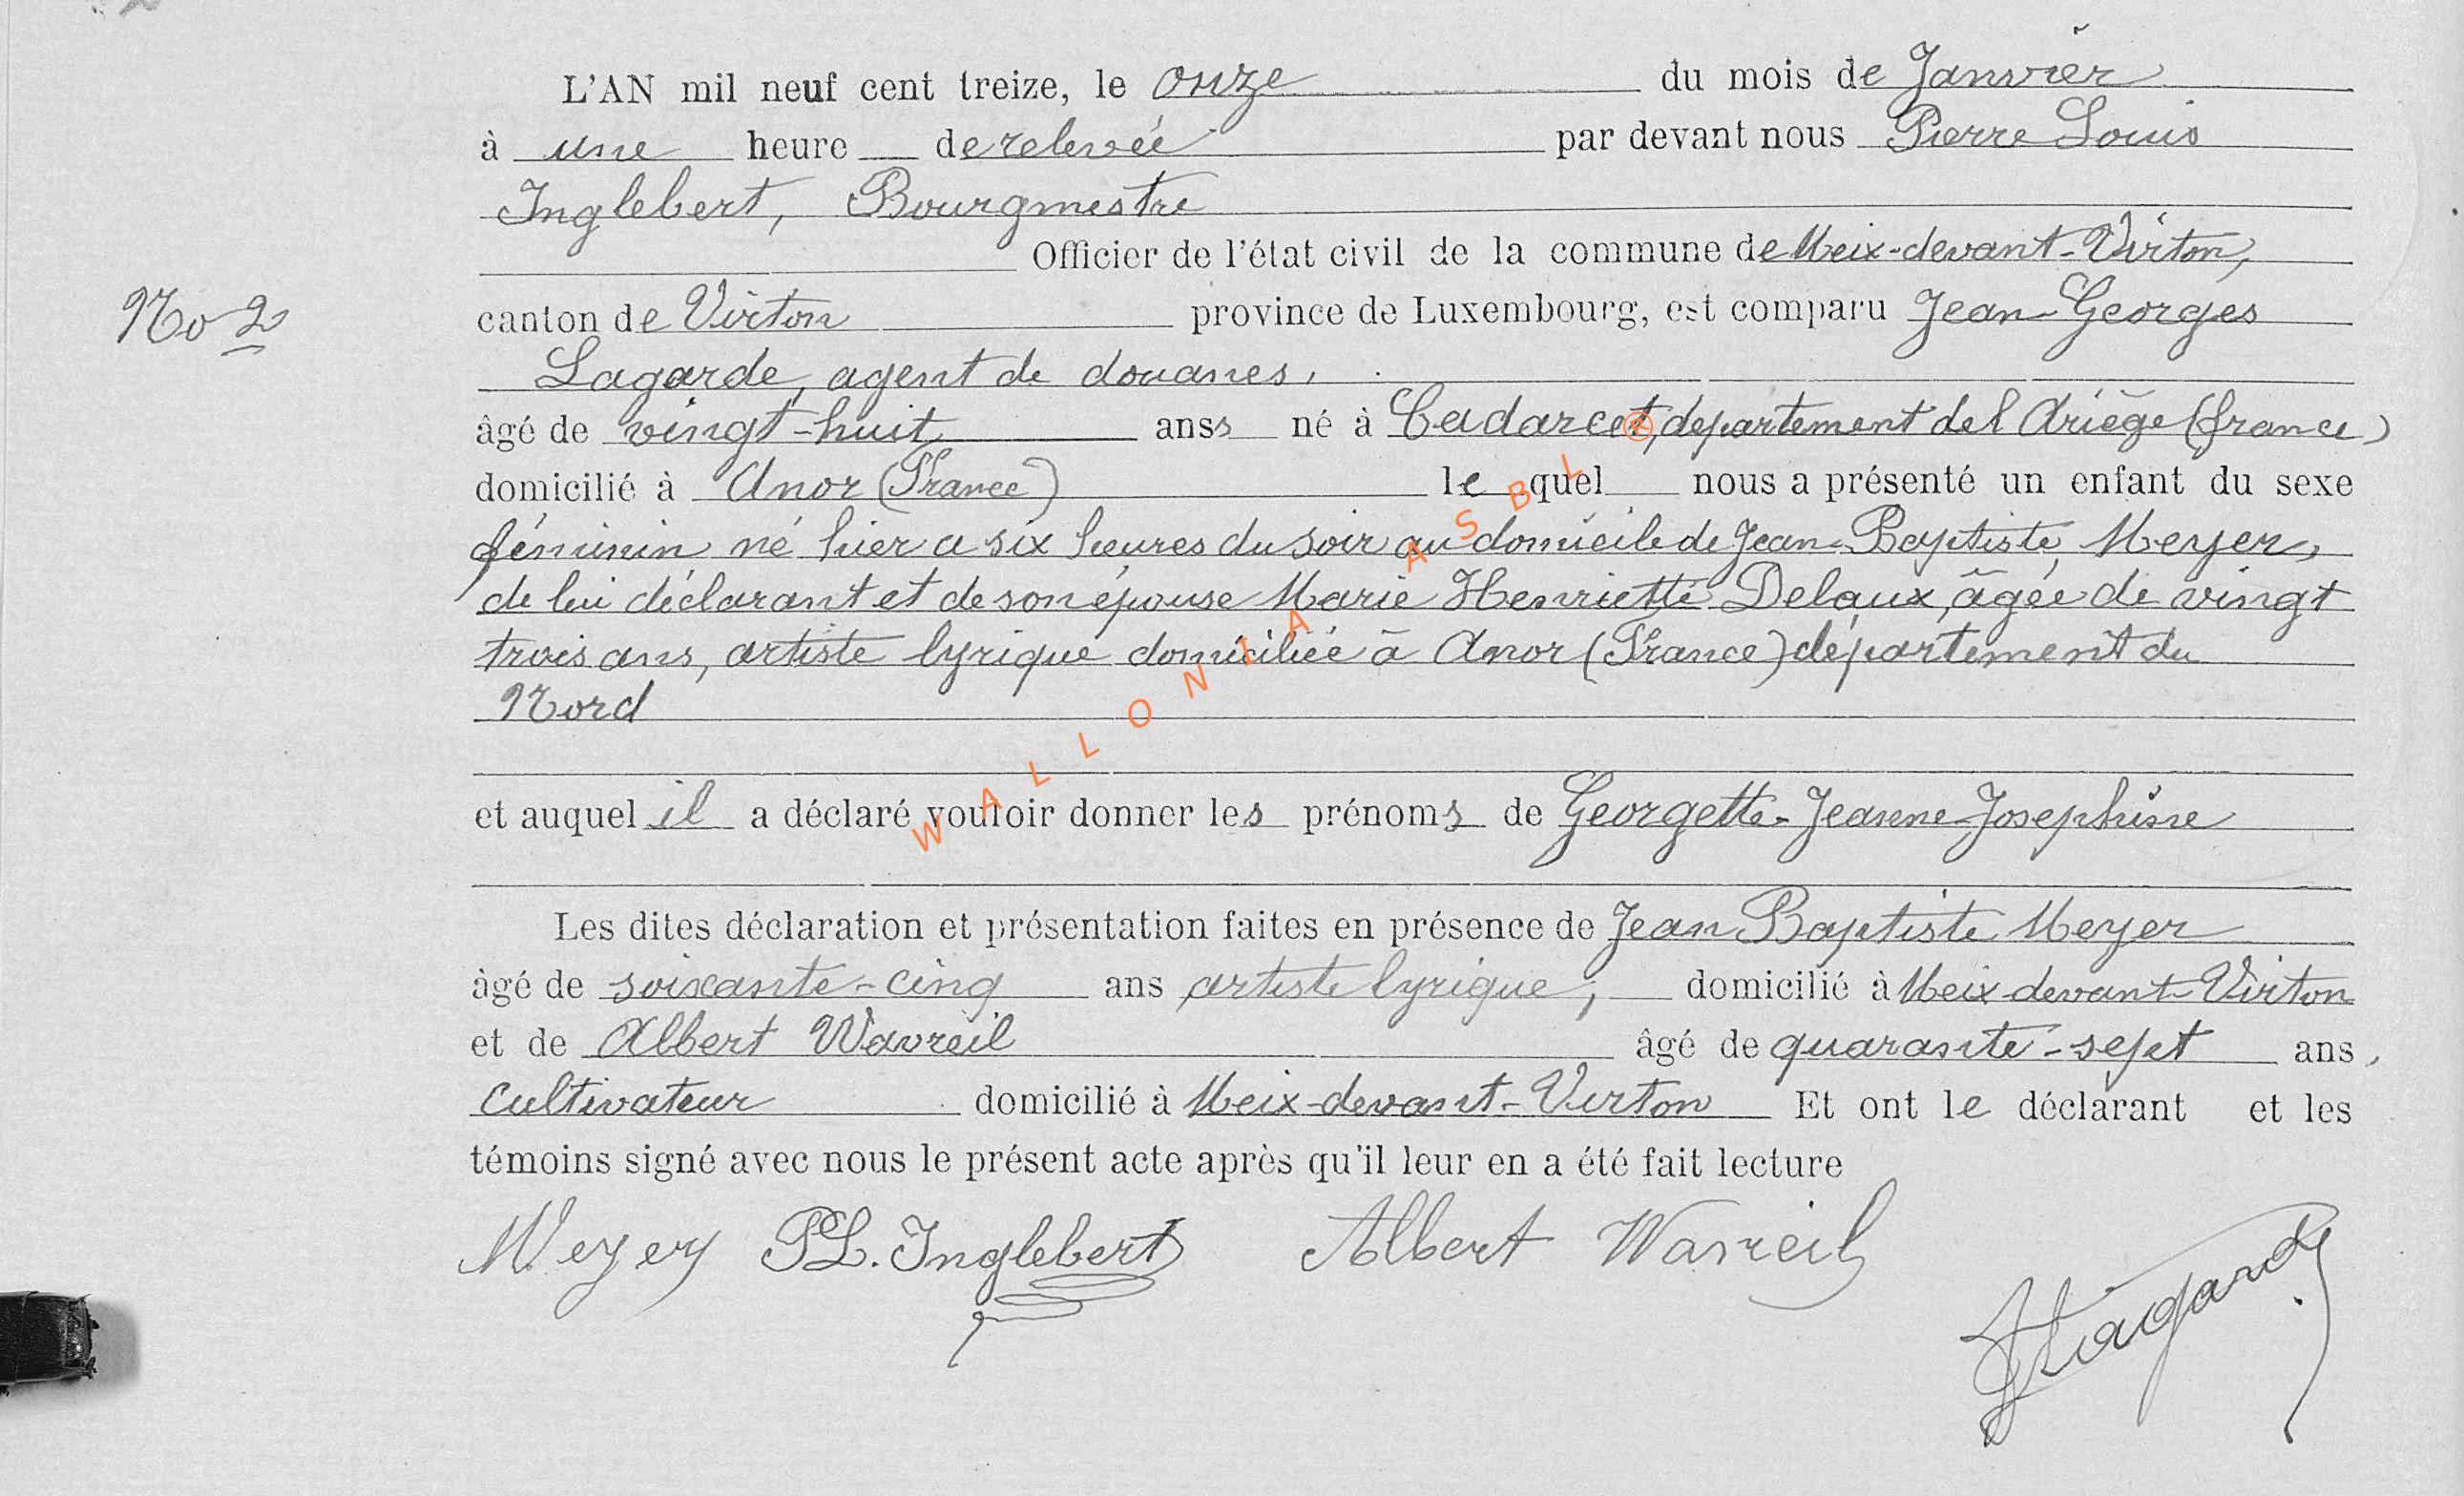 L'AN mil neuf cent treize, le onze du mois de Janvier
à une heure de relevée par devant nous Pierre Louis
Inglebert, Bourgmestre
Officier de l'état civil de la commune de Meix-devant-Virton,
No 2
canton de Virton province de Luxembourg, est comparu Jean-Georges
Lagarde, agent de douanes,
âgé de vingt-huit anss né à Cadarcet, département de l Ariège (france)
domicilié à Anor (France) le quel nous a présenté un enfant du sexe
féminin né hier a six heures du soir au domicile de Jean-Baptiste Meyer,
de lui déclarant et de son épouse Marie Henriette Delaux, âgée de vingt
trois ans, artiste lyrique domiciliée à Anor (France) département du
Nord
et auquel il a déclaré vouloir donner les prénoms de Georgette-Jeanne-Josephine
Les dites déclaration et présentation faites en présence de Jean Baptiste Meyer
âgé de soixante-cinq ans artiste lyrique, domicilié à Meix-devant-Virton
et de Albert Wavreil âgé de quarante-sept ans,
cultivateur domicilié à Meix-devant-Virton Et ont le déclarant et les
témoins signé avec nous le présent acte après qu'il leur en a été fait lecture
Meyer PL. Inglebert Albert Wavreil
JLagarde
WALLONIA ASBL ®